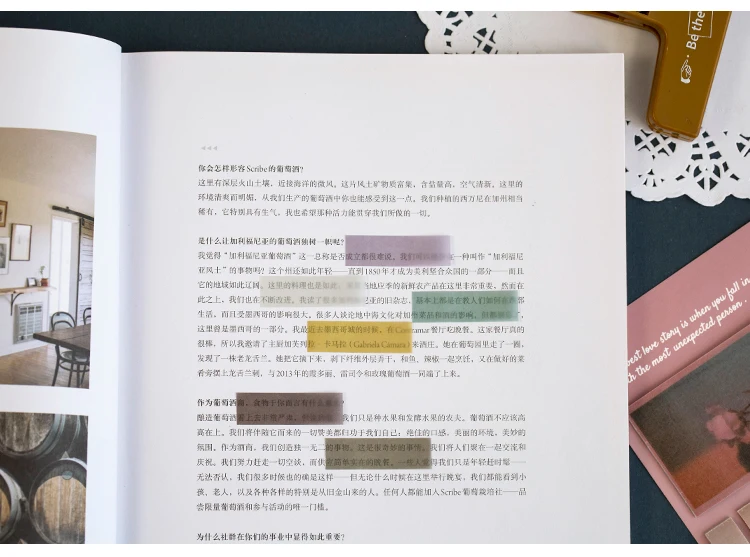 你会怎样形容Scribe的葡萄酒?
这里有深层火山土壤，近接海洋的微风。这片风土矿物质富集、含盐量高，空气清新。这里的
环境清爽而明媚，从我们生产的葡萄酒中你也能感受到这一点。我们种植的西万尼在加州相当
稀有，它特别具有生气，我也希望那种活力能贯穿我们所做的一切。
是什么让加利福尼亚的葡萄酒独树一帜呢?
我觉得“加利福尼亚葡萄酒”这一总称是否成立都很难说。我们 一种叫作“加利福尼
亚风土”的事物吗? 这个州还如此年轻——直到1850年才成为美利坚合众国的一部分——而且
它的地域如此辽阔。这里的料理也是如此。 当地应季的新鲜农产品在这里非常重要，然而在
此之上，我们也在不断改进。我读了 尼亚的旧杂志，基本上都是在教人们如何在
生活，而且受墨西哥的影响很大。很多人谈论地中海文化对加州菜品和酒的影响，但
这里曾是墨西哥的一部分。我最近去墨西哥城的时候，在Contramar餐厅吃晚餐。这家餐厅真的
很棒，所以我邀请了主厨加芙列拉·卡马拉（Gabriela Cámara）来酒庄。她在葡萄园里走了一圈，
发现了一株老龙舌兰。她把它摘下来，剥下纤维外层弄干，和鱼、辣椒一起烹饪，又在做好的菜
肴旁摆上龙舌兰刺，与2013年的霞多丽、雷司令和玫瑰葡萄酒一同端了上来。
作为葡萄酒商，食物于你而言有什么意义?
酿造葡萄酒 我们只是种水果和发酵水果的农夫。葡萄酒不应该高
高在上。我们将伴随它而来的一切赞美都归功于我们自己：绝佳的口感、美丽的环境、美妙的
氛围。作为酒商，我们创造独一无二的事物，这是很奇妙的事情。我们将人们聚在一起交流和
庆祝。我们努力赶走一切空谈，而供 简单实在的晚餐。一些人觉得我们只是年轻赶时髦——
无法否认，我们很多时候也的确是这样——但无论什么时候在这里举行晚宴，我们都能看到小
孩、老人，以及各种各样的特别是从旧金山来的人。任何人都能加入Scribe葡萄栽培社——品
尝限量葡萄酒和参与活动的唯一门槛。
为什么社群在你们的事业中显得如此重要?
Be the
best love story is when you fall in
th the most unexpected person